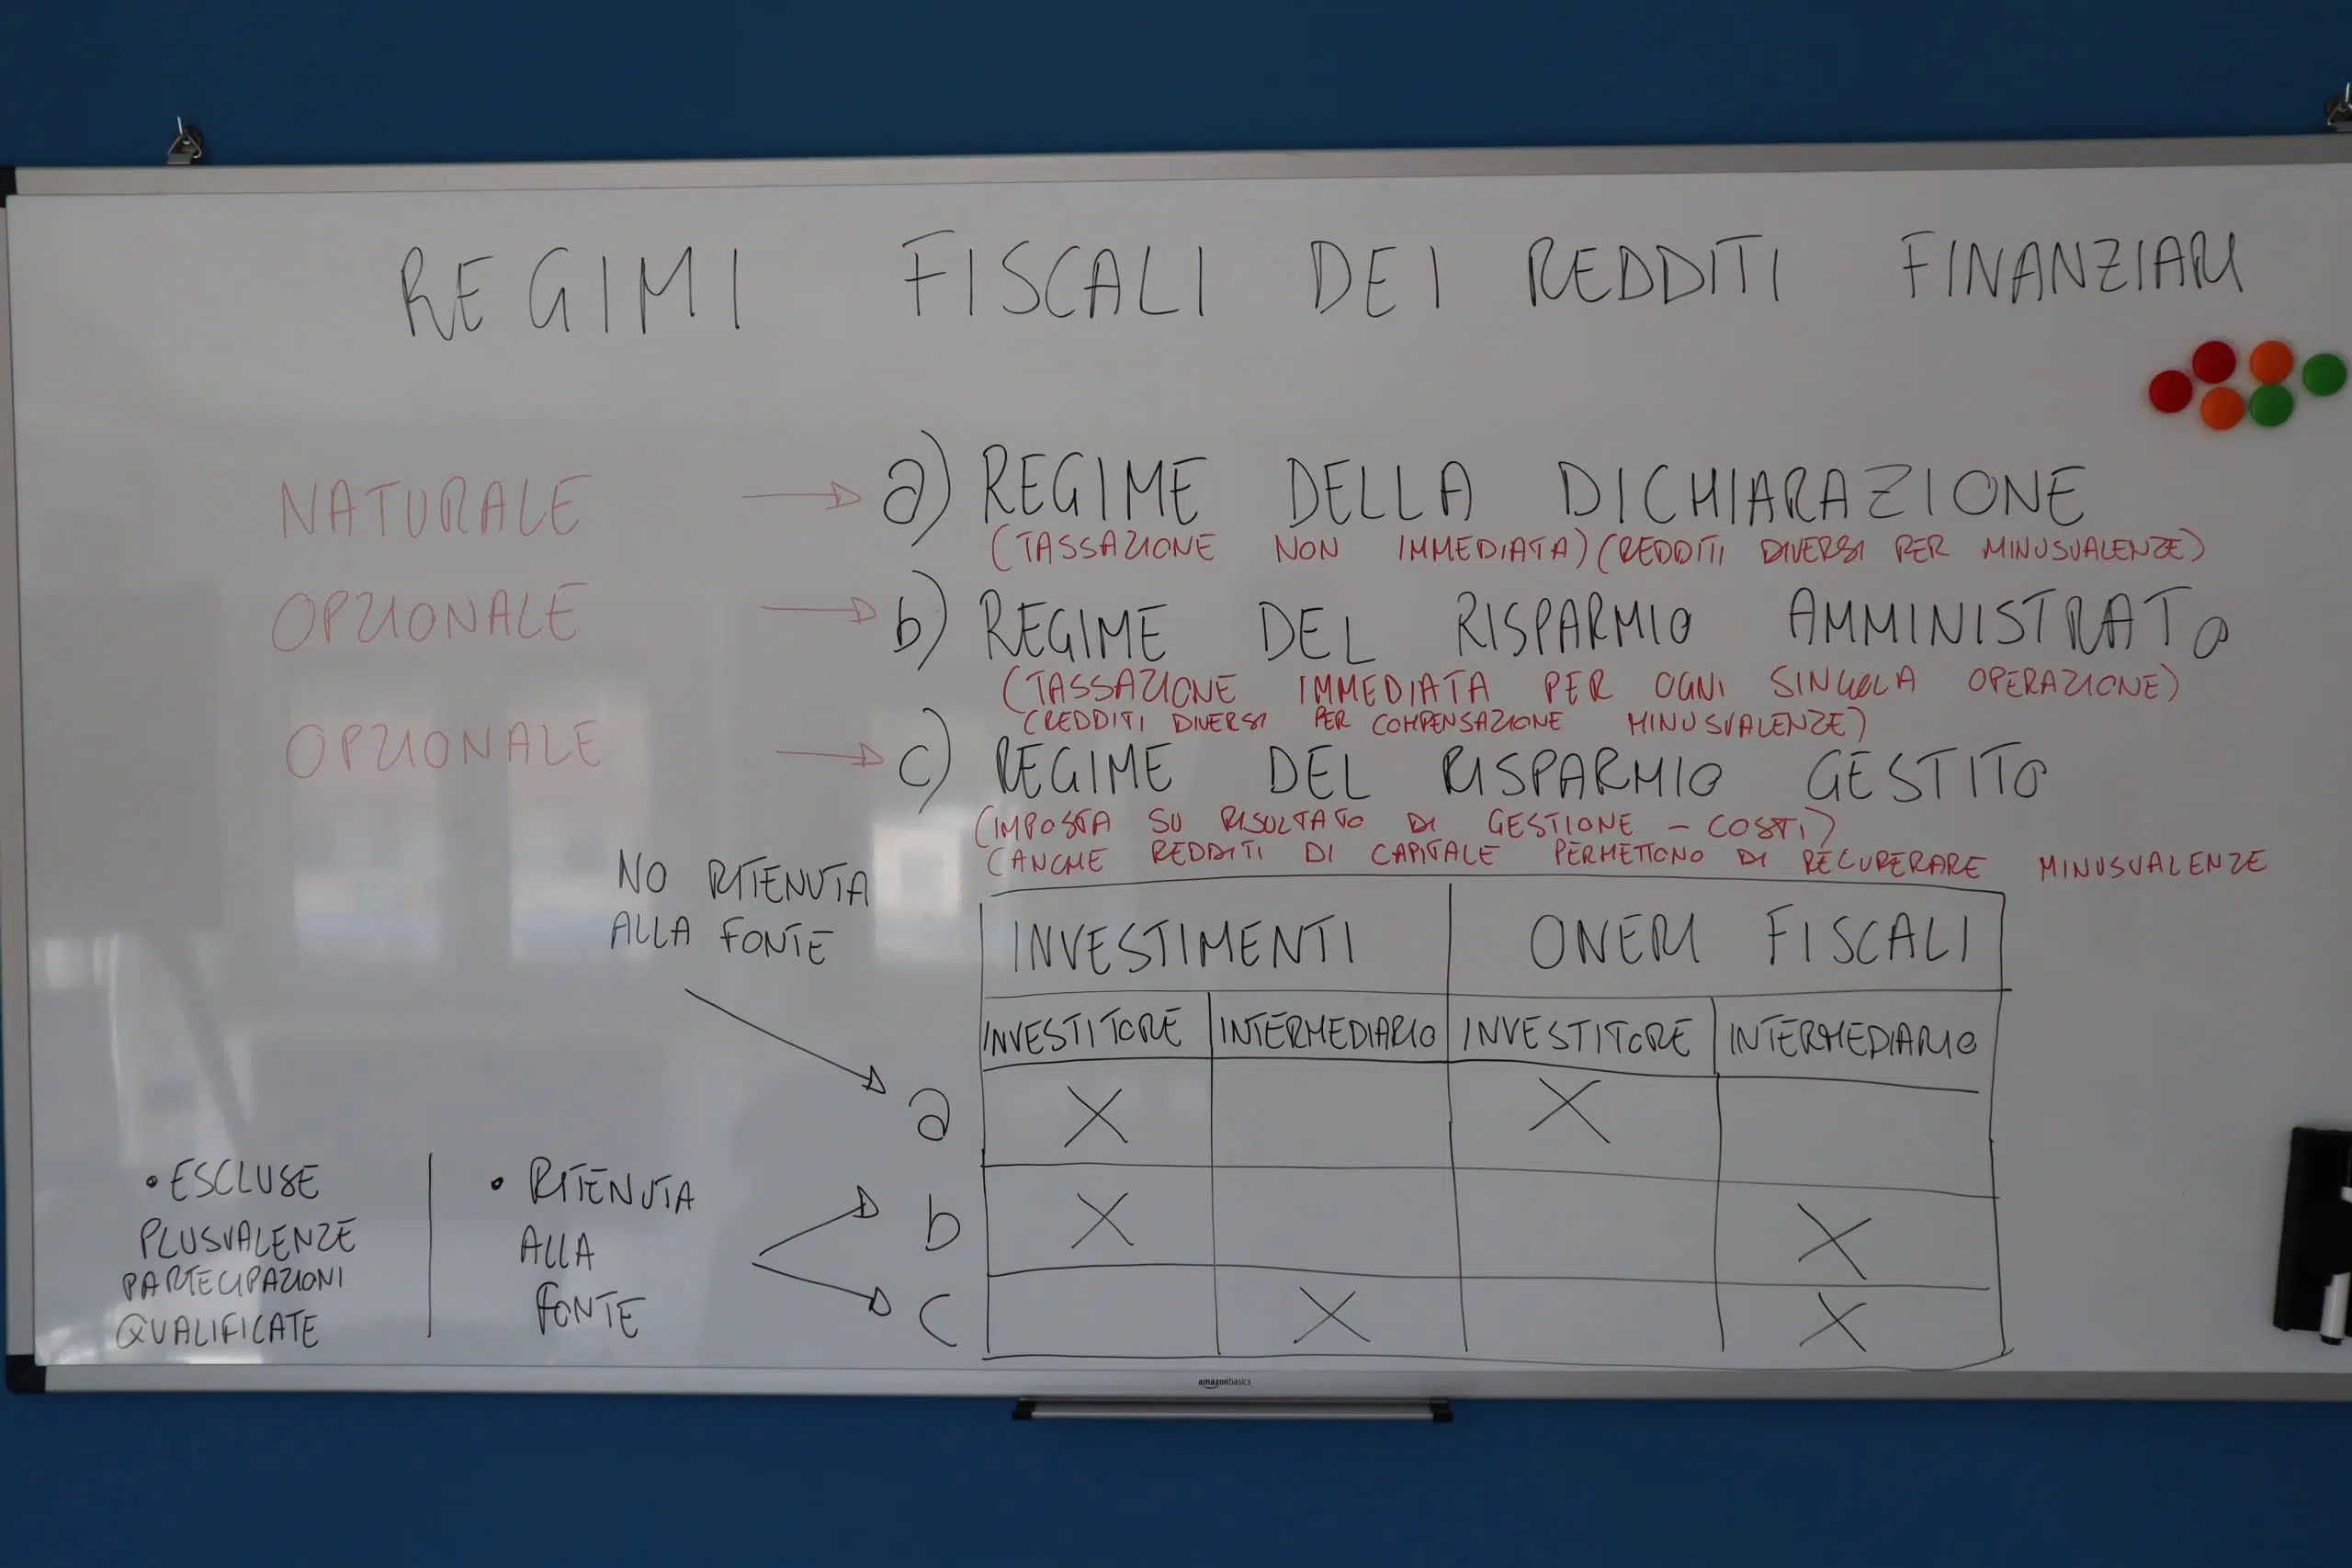 REGIMI FISCALI DEI REDDITI FINANZIARI
NATURALE → a) REGIME DELLA DICHIARAZIONE
(TASSAZIONE NON IMMEDIATA) (REDDITI DIVERSI PER MINUSVALENZE)
OPZIONALE → b) REGIME DEL RISPARMIO AMMINISTRATO
(TASSAZIONE IMMEDIATA PER OGNI SINGOLA OPERAZIONE)
(REDDITI DIVERSI PER COMPENSAZIONE MINUSVALENZE)
OPZIONALE → c) REGIME DEL RISPARMIO GESTITO
(IMPOSTA SU RISULTATO DI GESTIONE - COSTI)
(ANCHE REDDITI DI CAPITALE PERMETTONO DI RECUPERARE MINUSVALENZE
NO RITENUTA
ALLA FONTE
INVESTIMENTI ONERI FISCALI
INVESTITORE INTERMEDIARIO INVESTITORE INTERMEDIARIO
a X X
b X X
c X X
• ESCLUSE
PLUSVALENZE
PARTECIPAZIONI
QUALIFICATE
• RITENUTA
ALLA
FONTE
amazonbasics